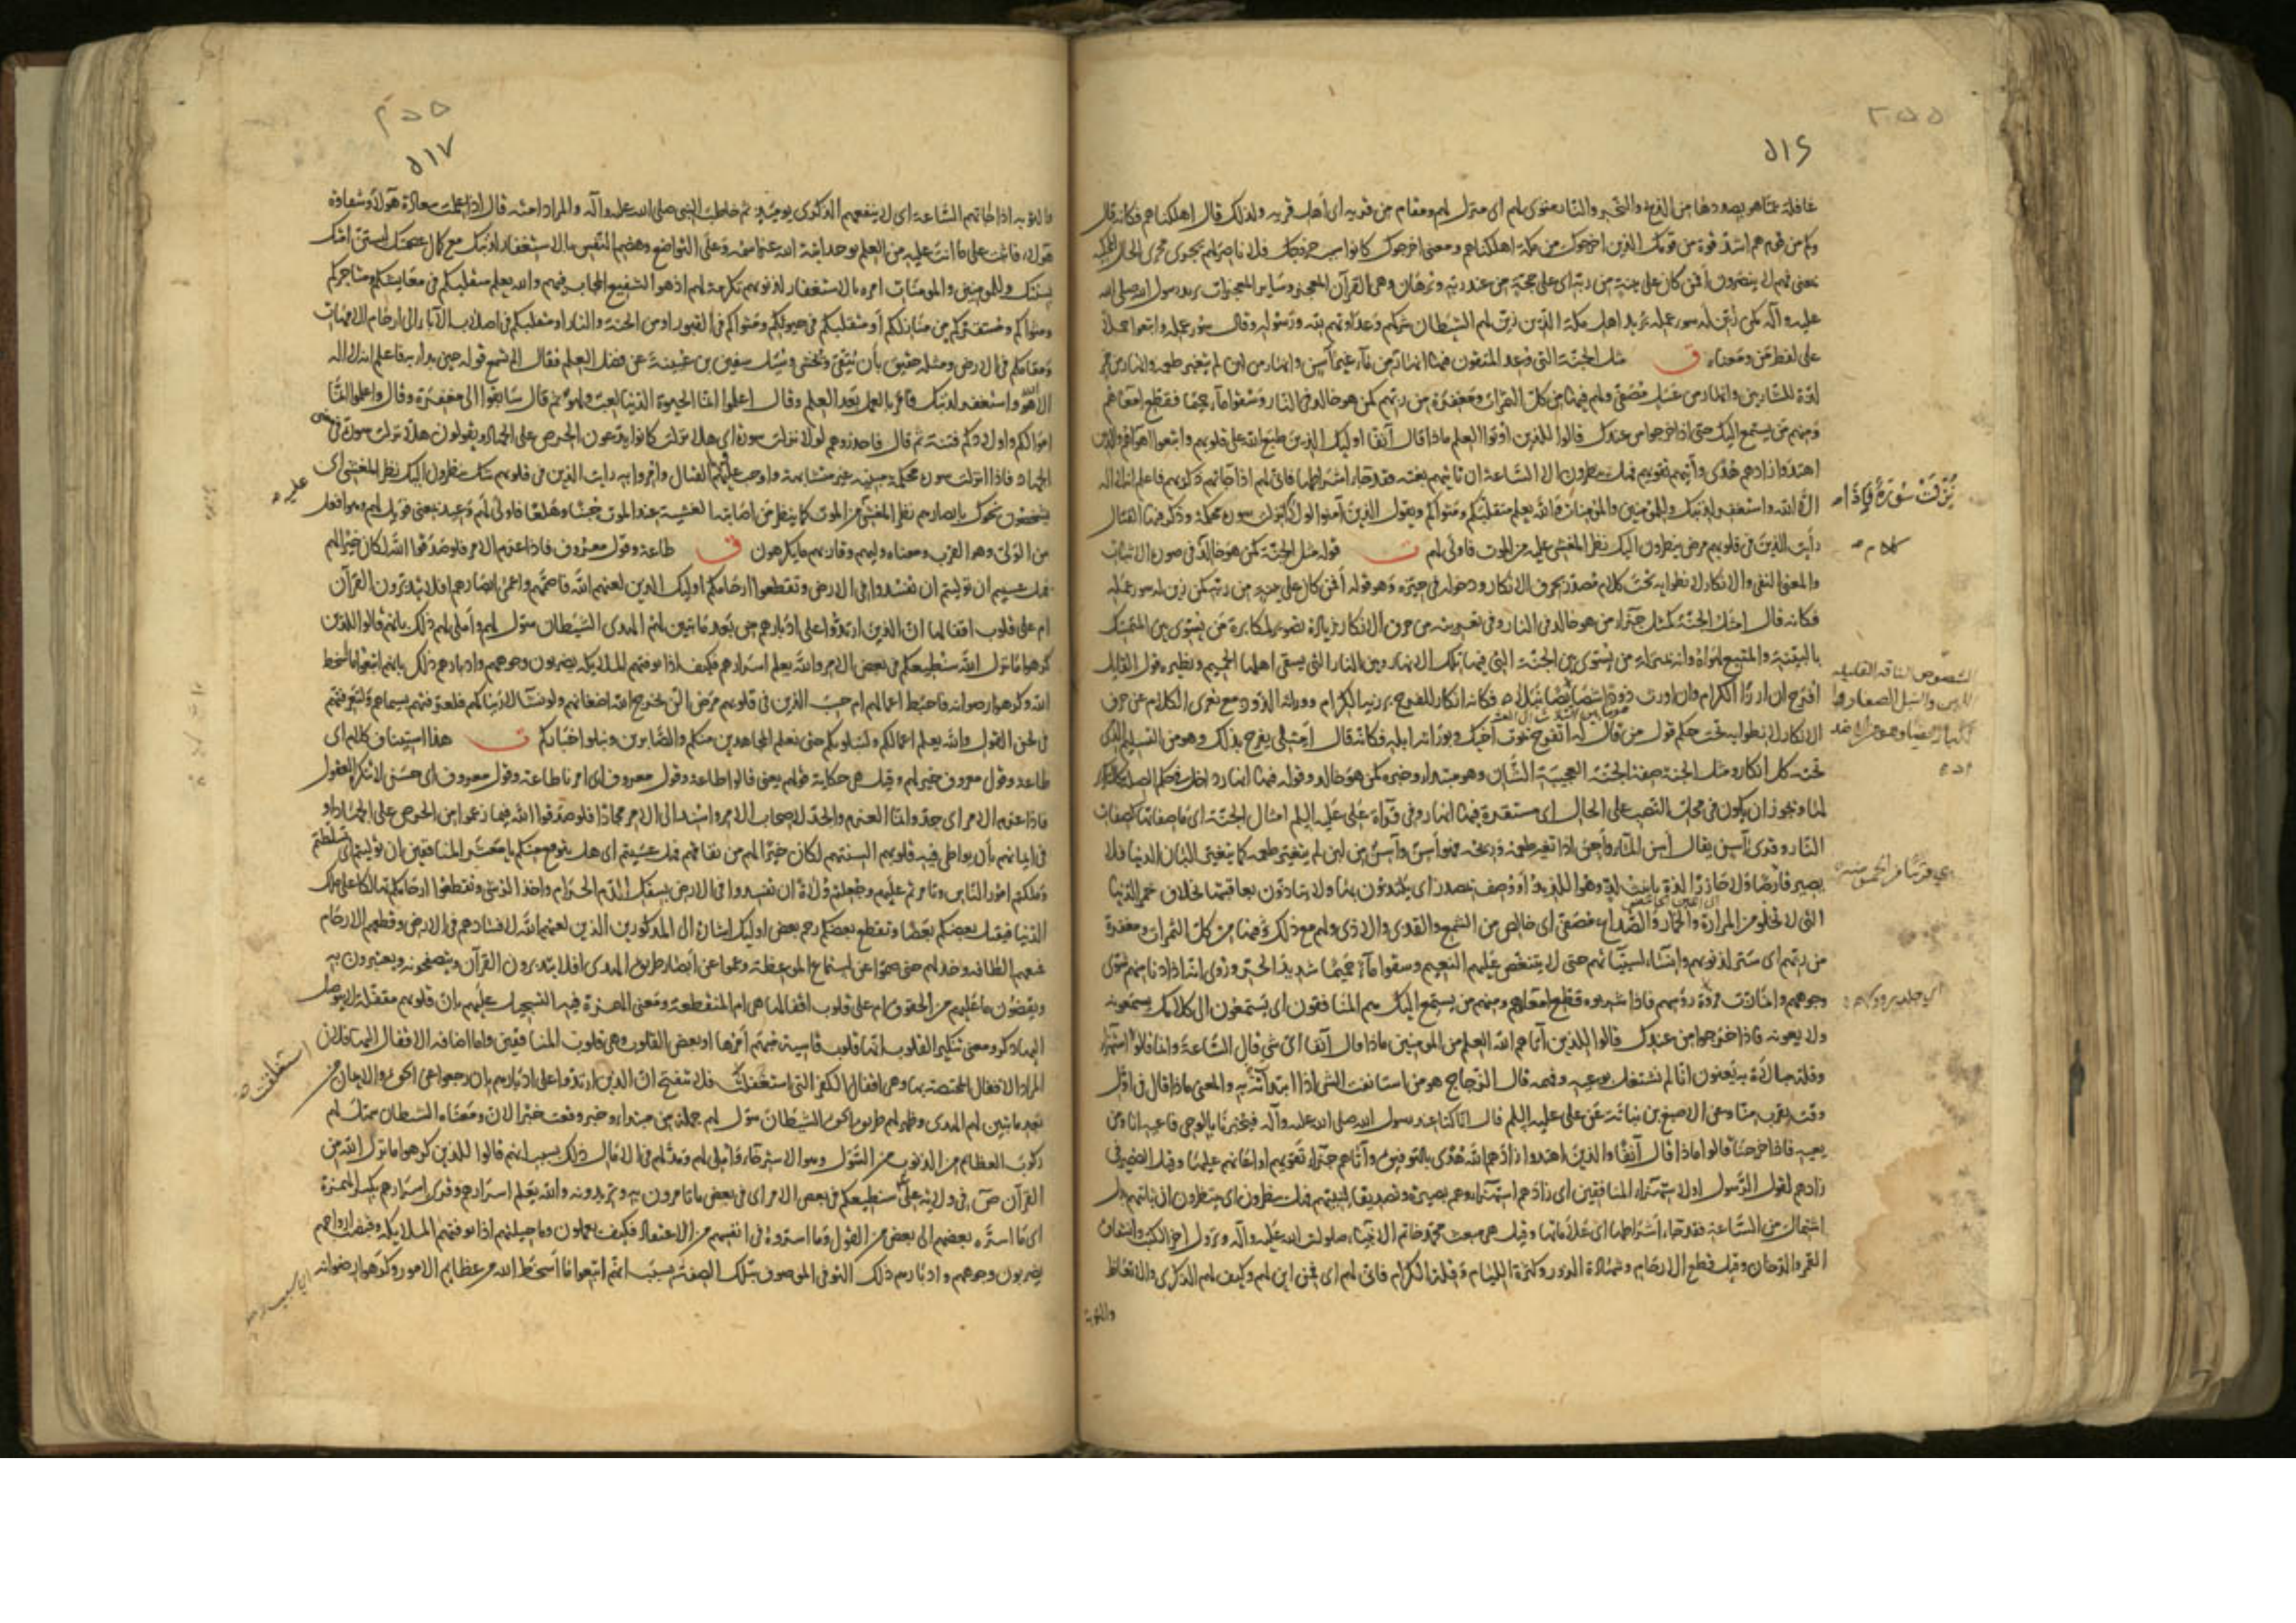 ٥١٦
غافلة عما هو بصددها من الذبح والنحر والنار مثوى لهم اى منزل لهم ومقام من قرية اى أهل قرية ولذلك قال اهلكناهم فكانه قال
وكم من قوم هم اشد قوة من قومك الذين اخرجوك من مكة اهلكناهم ومعنى اخرجوك كانوا سبب خروجك فلا ناصر لهم يجرى مجرى الحال
بمعنى فهم لا ينصرون أفمن كان على بينة من ربه اى على حجة من عند ربه وبرهان وهى القرآن المعجز وساير المعجزات يريد رسول الله صلى الله
عليه وآله كمن زين له سوء عمله يريد اهل مكة الذين زين لهم الشيطان شركهم وعداوتهم لله ورسوله وقال سوء عمله واتبعوا حملا
على لفظ من ومعناه ق مثل الجنة التى وعد المتقون فيها انهار من ماء غير آسن وانهار من لبن لم يتغير طعمه وانهار من خمر
لذة للشاربين وانهار من عسل مصفى ولهم فيها من كل الثمرات ومغفرة من ربهم كمن هو خالد فى النار وسقوا ماء حميما فقطع امعاءهم
ومنهم من يستمع اليك حتى اذا خرجوا من عندك قالوا للذين اوتوا العلم ماذا قال آنفا اوليك الذين طبع الله على قلوبهم واتبعوا اهواءهم والذين
اهتدوا زادهم هدى وآتيهم تقويهم فهل ينظرون الا الساعة ان تاتيهم بغتة فقد جاء اشراطها فانى لهم اذا جاءتهم ذكريهم فاعلم انه لا اله
الا الله واستغفر لذنبك وللمؤمنين والمؤمنات والله يعلم متقلبكم ومثواكم ويقول الذين آمنوا لولا نزلت سورة محكمة وذكر فيها القتال
نزلت سورة فاذا
رأيت الذين فى قلوبهم مرض ينظرون اليك نظر المغشى عليه من الموت فاولى لهم ت قوله مثل الجنة كمن هو خالد فى صورة الاثبات
والمعنى النفى والانكار لانطوائه تحت كلام مصدر بحرف الانكار ودخوله فى حيزه وهو قوله أفمن كان على بينة من ربه كمن زين له سوء عمله
فكانه قال امثل الجنة كمثل جزاء من هو خالد فى النار وفى تعريته من حرف الانكار زيادة تصوير لمكابرة من يسوى بين المتمسك
بالبينة والمتبع لهواه وانه بمنزلة من يسوى بين الجنة التى فيها تلك الانهار وبين النار التى يسقى اهلها الحميم ونظيره قول القايل
افرح ان ارزأ الكرام وان اورث ذودا شصائصا نبلا فكانه انكار للفرح برزية الكرام ووراثة الذود مع تعرى الكلام عن حرف
الانكار لانطوائه تحت حكم قول من قال له اتفرح بموت اخيك وبوراثة ابله فكانه قال أمثلى يفرح بذلك وهو من التسليم الذى
تحته كل انكار ومثل الجنة صفة الجنة العجيبة الشان وهو مبتداء وخبره كمن هو خالد وقوله فيها انهار داخل فى حكم الصلة
لها ويجوز ان يكون فى محل النصب على الحال اى مستقرة فيها انهار وفى قراءة على عليه السلم امثال الجنة اى ما صفاتها كصفات
النار وقرى أسن يقال أسن الماء وأجن اذا تغير طعمه وريحه فهو أسن وآسن من لبن لم يتغير طعمه كما يتغير البان الدنيا فلا
يصير قارصا ولا حازرا لذة تانيث لذ وهو اللذيذ او وصف بمصدر اى يلتذون بها ولا يتأذون بعاقبتها بخلاف خمر الدنيا
التى لا تخلو من المرارة والخمار والصداع مصفى اى خالص من الشمع والقذى والاذى ولهم مع ذلك فيها من كل الثمرات ومغفرة
من ربهم اى ستر لذنوبهم وانساء لسيئاتهم حتى لا يتنغص عليهم النعيم وسقوا ماء حميما شديد الحر وروى انه اذا دنا منهم شوى
وجوههم وامازت فروة رؤسهم فاذا شربوه قطع امعاءهم ومنهم من يستمع اليك هم المنافقون اى يستمعون الى كلامك يسمعونه
ولا يعونه فاذا خرجوا من عندك قالوا للذين آتاهم الله العلم من المؤمنين ماذا قال آنفا اى شى قال الساعة وانما قالوا استهزاء
وقلة مبالاة به يعنون انا لم نشتغل بوعيه وفهمه قال الزجاج هو من استانفت الشى اذا ابتدأته والمعنى ماذا قال فى اول
وقت يقرب منا وعن الاصبغ بن نباتة عن على عليه السلم قال انا كنا عند رسول الله صلى الله عليه وآله فيخبرنا بالوحى فاعيه انا ومن
يعيه فاذا خرجنا قالوا ماذا قال آنفا والذين اهتدوا زادهم الله هدى بالتوفيق وآتاهم جزاء تقويهم او اعانهم عليها وقيل الضمير فى
زادهم لقول الرسول او لاستهزاء المنافقين اى زادهم استهزاءوهم بصيرة وتصديقا لنبيهم فهل ينظرون اى ينتظرون ان تاتيهم بدل
اشتمال من الساعة فقد جاء اشراطها اى علاماتها وقيل هى مبعث محمد خاتم الانبياء صلوات الله عليه وآله ونزول اخر الكتب وانشقاق
القمر والدخان وقيل قطع الارحام وشهادة الزور وكثرة الليام وقلة الكرام فانى لهم اى فمن اين لهم وكيف لهم الذكرى والاتعاظ
والتوبة
٥١٧
والتوبة اذا جاءتهم الساعة اى لا ينفعهم الذكرى يوميذ ثم خاطب النبى صلى الله عليه وآله والمراد امته قال اذا علمت سعادة هولاء وشقاوة
هولاء فاثبت على ما انت عليه من العلم بوحدانية الله عز اسمه وعلى التواضع وهضم النفس بالاستغفار لذنبك مع كمال عصمتك لتستن امتك
بسنتك وللمومنين والمومنات امره بالاستغفار لذنوبهم تكرمة لهم اذ هو الشفيع المجاب فيهم والله يعلم متقلبكم فى معايشكم ومتاجركم
ومثواكم ومستقركم من منازلكم أو متقلبكم فى حيوتكم ومثواكم فى القبور او من الجنة والنار او متقلبكم فى اصلاب الآباء الى ارحام الامهات
ومقامكم فى الارض ومثله حقيق بأن يتقى ويخشى وسئل سفين بن عيينة عن فضل العلم فقال الم تسمع قوله حين بدا به فاعلم انه لا اله
الا الله واستغفر لذنبك فامر بالعمل بعد العلم وقال اعلموا انما الحيوة الدنيا لعب ولهو ثم قال سابقوا الى مغفرة وقال واعلموا انما
اموالكم واولادكم فتنة ثم قال فاحذروهم لولا نزلت سورة اى هلا نزلت كانوا يدعون الحرص على الجهاد ويقولون هلا نزلت سورة فى معنى
الجهاد فاذا انزلت سورة محكمة مبينة غير متشابهة واوجب عليهم القتال وامروا به رايت الذين فى قلوبهم شك ينظرون اليك نظر المغشى اى
عليه
يشخصون نحوك بابصارهم نظر المغشى من الموت كما ينظر من اصابته الغشية عند الموت جبنا وهلعا فاولى لهم وعيد بمعنى فويل لهم وهو افعل
من الولى وهو القرب ومعناه وليهم وقاربهم ما يكرهون ق طاعة وقول معروف فاذا عزم الامر فلو صدقوا الله لكان خيرا لهم
فهل عسيتم ان توليتم ان تفسدوا فى الارض وتقطعوا ارحامكم اوليك الذين لعنهم الله فاصمهم واعمى ابصارهم افلا يتدبرون القرآن
ام على قلوب اقفالها ان الذين ارتدوا على ادبارهم من بعد ما تبين لهم الهدى الشيطان سول لهم وأملى لهم ذلك بانهم قالوا للذين
كرهوا ما نزل الله سنطيعكم فى بعض الامر والله يعلم اسرارهم فكيف اذا توفتهم الملايكة يضربون وجوههم وادبارهم ذلك بانهم اتبعوا ما اسخط
الله وكرهوا رضوانه فاحبط اعمالهم ام حسب الذين فى قلوبهم مرض ان لن يخرج الله اضغانهم ولو نشاء لاريناكهم فلعرفتهم بسيماهم ولتعرفنهم
فى لحن القول والله يعلم اعمالكم ولنبلونكم حتى نعلم المجاهدين منكم والصابرين ونبلوا اخباركم ت هذا استيناف كلام اى
طاعة وقول معروف خير لهم وقيل هى حكاية قولهم يعنى قالوا طاعة وقول معروف اى امرنا طاعة وقول معروف اى حسن لا تنكره العقول
فاذا عزم الامر اى جد وانما العزم والجد لاصحاب الامر واسند الى الامر مجازا فلو صدقوا الله فيما زعموا من الحرص على الجهاد او
فى ايمانهم بأن يواطى فيه قلوبهم السنتهم لكان خيرا لهم من نفاقهم فهل عسيتم اى هل يتوقع منكم يا معشر المنافقين ان توليتم اى تسلطتم
وملكتم امور الناس وتامرتم عليهم وجعلتم ولاة ان تفسدوا فى الارض بسفك الدم الحرام واخذ الرشى وتقطعوا ارحامكم تهالكا على ملك
الدنيا فيقتل بعضكم بعضا وتقطع بعضكم رحم بعض اوليك اشارة الى المذكورين الذين لعنهم الله لافسادهم فى الارض وقطعهم الارحام
فمنعهم الطافه وخذلهم حتى صموا عن استماع الموعظة وعموا عن ابصار طريق الهدى افلا يتدبرون القرآن ويتصفحونه ويعتبرون به
ويقضون ما عليهم من الحقوق ام على قلوب اقفالها هى ام المنقطعة ومعنى الهمزة فيه التسجيل عليهم بان قلوبهم مقفلة لا يتوصل
اليها ذكر ومعنى تنكير القلوب انها قلوب قاسية مبهم أمرها او بعض القلوب وهى قلوب المنافقين واما اضافة الاقفال اليها فلان
المراد الاقفال المختصة بها وهى اقفال الكفر التى استغلقت فلا تنفتح ان الذين ارتدوا على ادبارهم بان رجعوا عن الحق والايمان من
استغلقت
بعد ما تبين لهم الهدى وظهر لهم طريق الحق الشيطان سول لهم جملة من مبتداء وخبر وقعت خبرا لان ومعناه الشيطان سهل لهم
ركوب العظايم من الذنوب من السول وهو الاسترخاء وأملى لهم ومد لهم فى الامال ذلك بسبب انهم قالوا للذين كرهوا ما نزل الله من
القرآن فى ولاية على سنطيعكم فى بعض الامر اى فى بعض ما تامرون به وتريدونه والله يعلم اسرارهم وقرى اسرارهم بكسر الهمزة
اى ما اسره بعضهم الى بعض من القول وما اسروه فى انفسهم من الاعتقاد فكيف يعملون وما حيلتهم اذا توفتهم الملايكة وقبض ارواحهم
يضربون وجوههم وادبارهم ذلك التوفى الموصوف بتلك الصفة بسبب انهم اتبعوا ما اسخط الله من عظايم الامور وكرهوا رضوانه